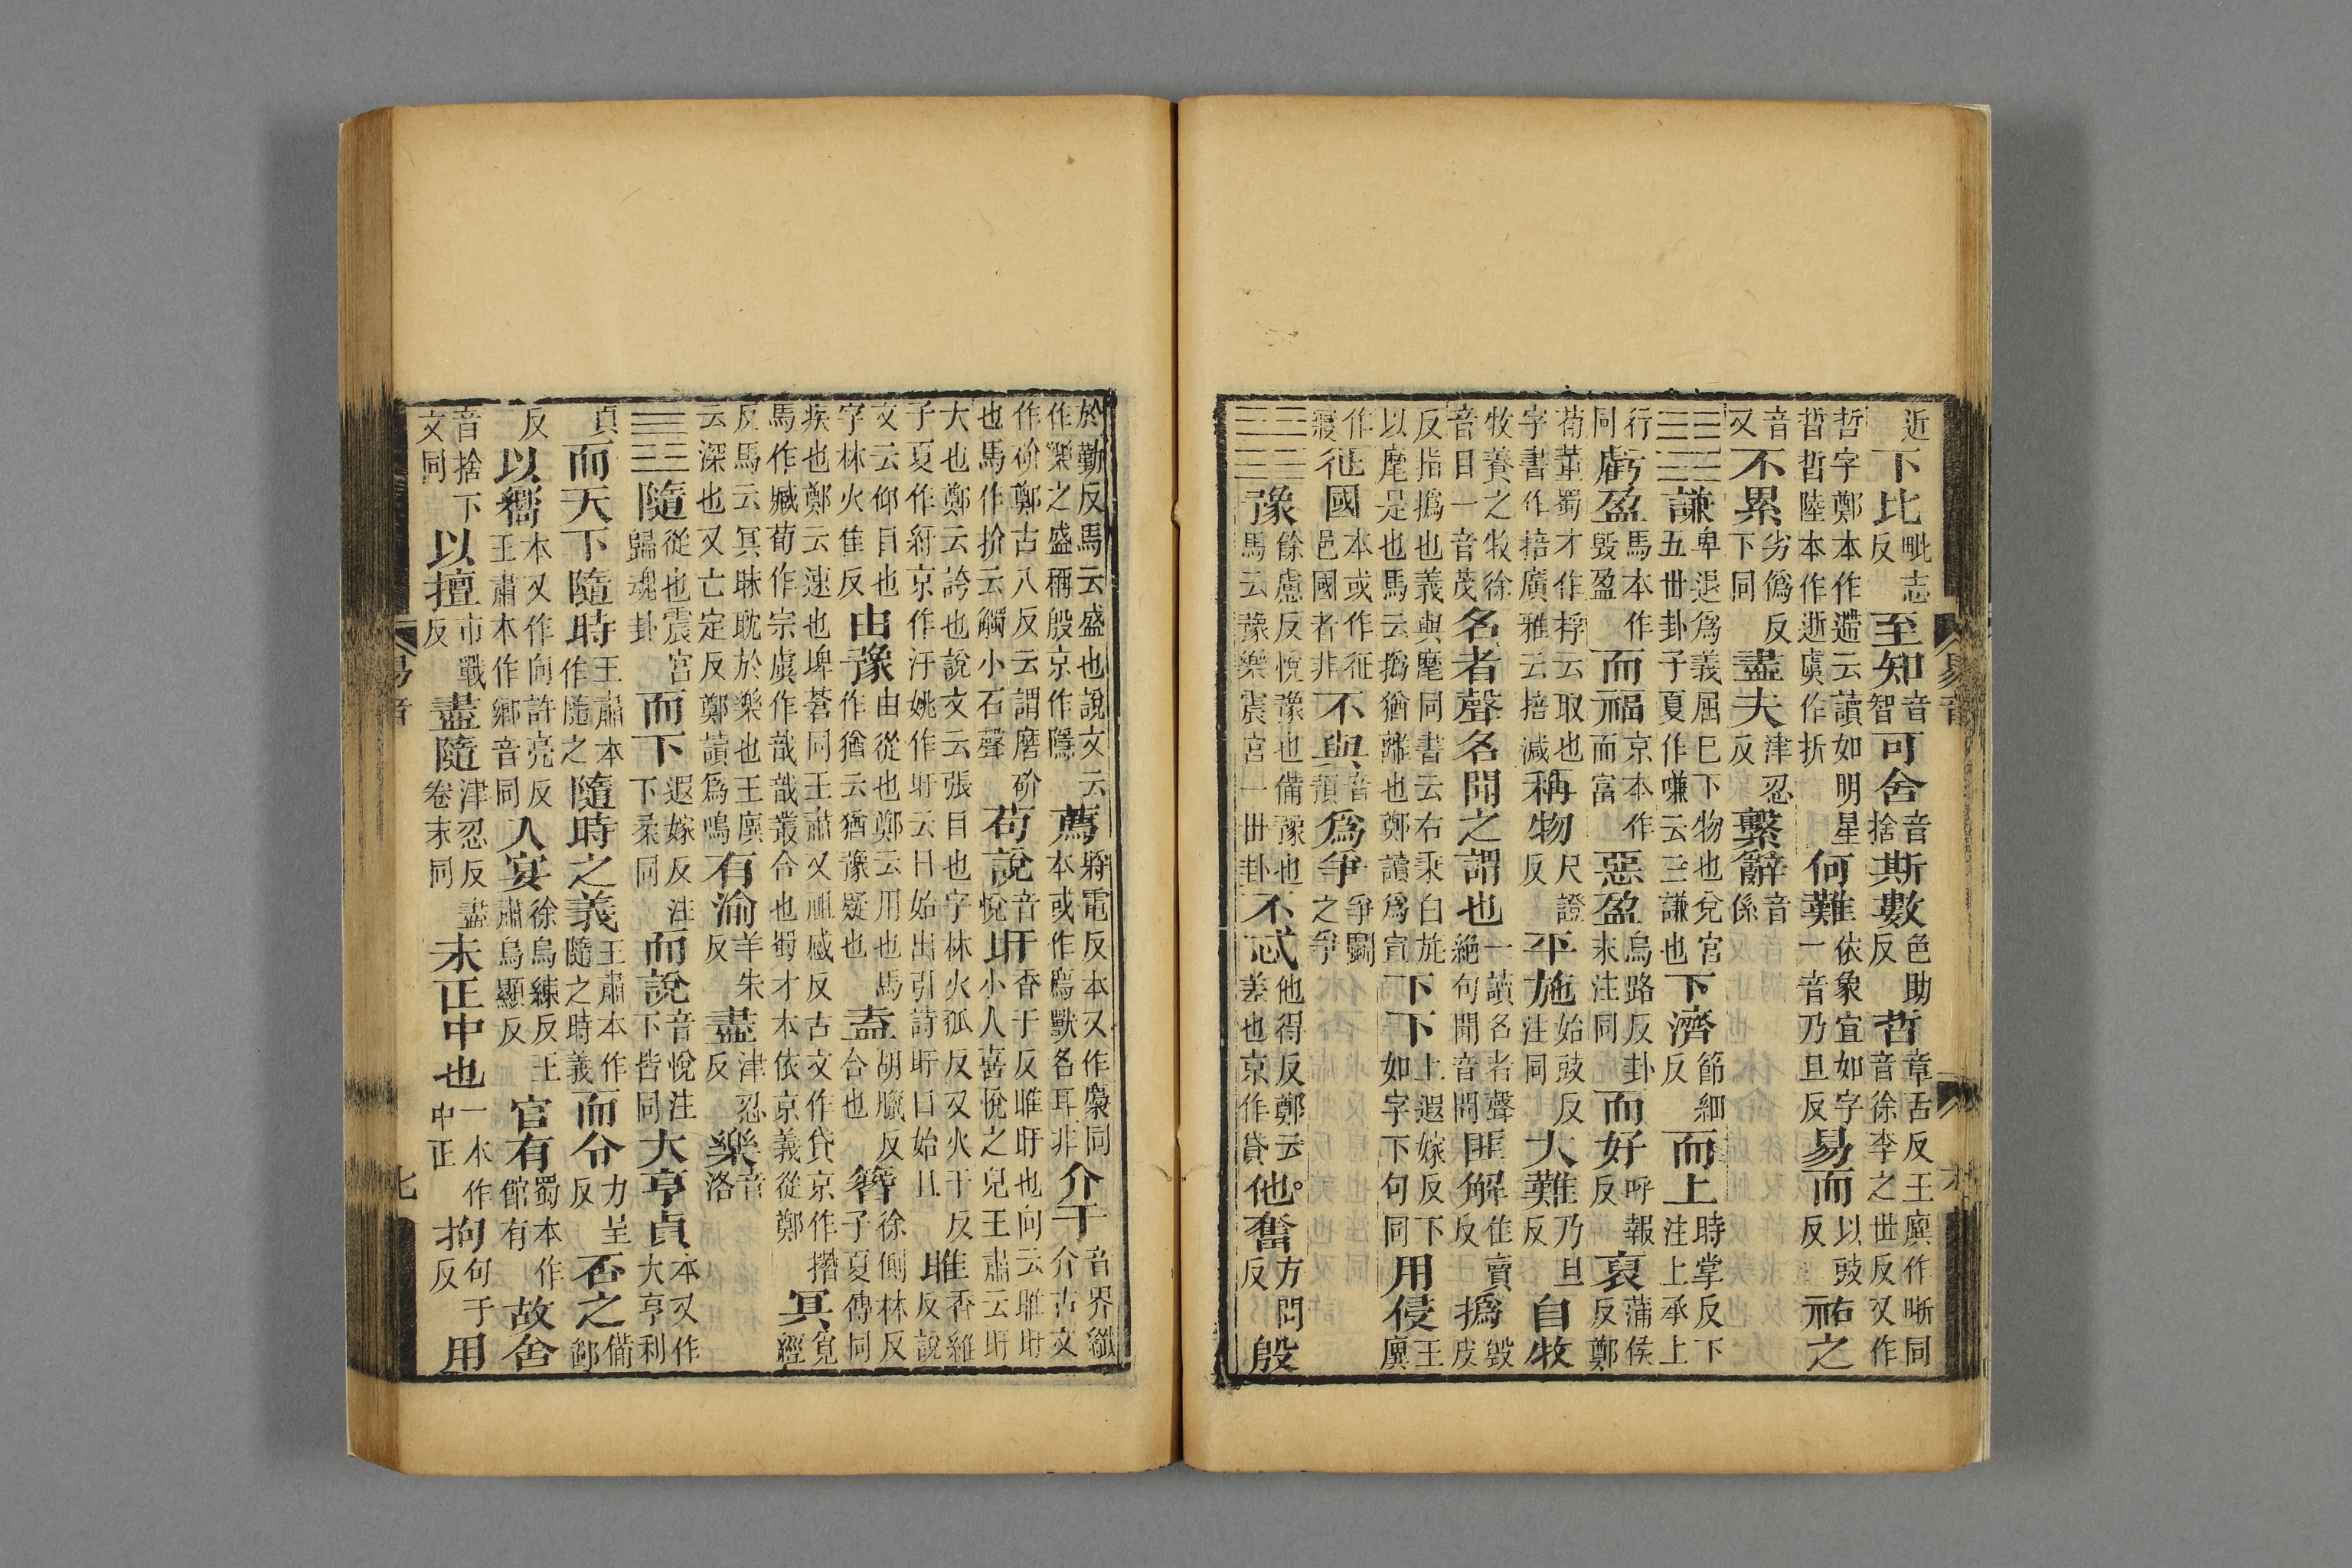 近下比毗志反至知音智可舍音捨斯數色助反晢章舌反王廙作晣同音徐李之世反又作
哲字鄭本作遰云讀如明星哲哲陸本作逝虞作折何難依象宜如字一音乃旦反易而以豉反祐之
音又不累劣僞反下同盡夫津忍反繫辭音係
䷎謙卑退爲義屈巳下物也兌宮五世卦子夏作嗛云三謙也下濟節細反而上時掌反下注上承上
行同虧盈馬本作毀盈而福京本作而富惡盈烏路反卦末注同而好呼報反裒蒲侯反鄭
荀董蜀才作捊云取也字書作掊廣雅云掊減稱物尺證反平施始豉反注同大難乃旦反自牧
牧養之牧徐音目一音茂名者聲名聞之謂也一讀名者聲絕句聞音問匪解佳賣反撝毀皮
反指撝也義與麾同書云右秉白旄以麾是也馬云撝猶離也鄭讀爲宣下下上遐嫁反下如字下句同用侵王廙
作寢征國本或作征邑國者非不與音預爲爭爭鬭之爭
䷏豫餘慮反悅豫也備豫也馬云豫樂震宮一世卦不忒他得反鄭云差也京作貸他。奮方問反殷
於勤反馬云盛也說文云作樂之盛稱殷京作隱薦將電反本又作𢊁同本或作薦獸名耳非介于音界纖介古文
作砎鄭古八反云謂磨砎也馬作扴云觸小石聲苟說音悅盱香于反睢盱也向云睢盱小人喜悅之皃王肅云盱
大也鄭云誇也說文云張目也字林火孤反又火于反子夏作紆京作汙姚作旴云日始出引詩旴日始旦睢香維反說
文云仰目也字林火隹反由豫由從也鄭云用也馬作猶云猶豫疑也盍胡臘反合也簪徐側林反子夏傳同
疾也鄭云速也埤蒼同王肅又祖感反古文作貸京作撍馬作臧荀作宗虞作戠戠叢合也蜀才本依京義從鄭冥覓經
反馬云冥昧耽於樂也王廙云深也又亡定反鄭讀爲鳴有渝羊朱反盡津忍反樂音洛
䷐隨從也震宮歸魂卦而下遐嫁反注下柔同而說音悅注下皆同大亨貞本又作大亨利
貞而天下隨時王肅本作隨之隨時之義王肅本作隨之時義而令力呈反否之備鄙
反以嚮本又作向許亮反王肅本作鄉音同人宴徐烏練反王肅烏顯反官有蜀本作館有故舍
音捨下文同以擅市戰反盡隨津忍反盡卷末同未正中也一本作中正拘句于反用
易音
易音
七